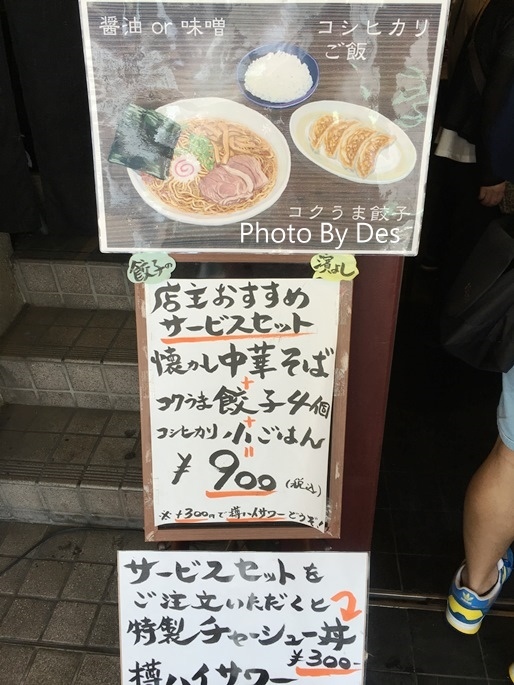 醤油 or 味噌
コシヒカリ
ご飯
コクうま餃子
Photo By Des
餃子の
濱よし
店主おすすめ
サービスセット
懐かし中華そば
+
コクうま餃子4個
+
コシヒカリ 小ごはん
=
¥900(税込)
※+300円で樽ハイサワーどうぞ!
サービスセットを
ご注文いただくと
特製チャーシュー丼
¥300-
樽ハイサワー